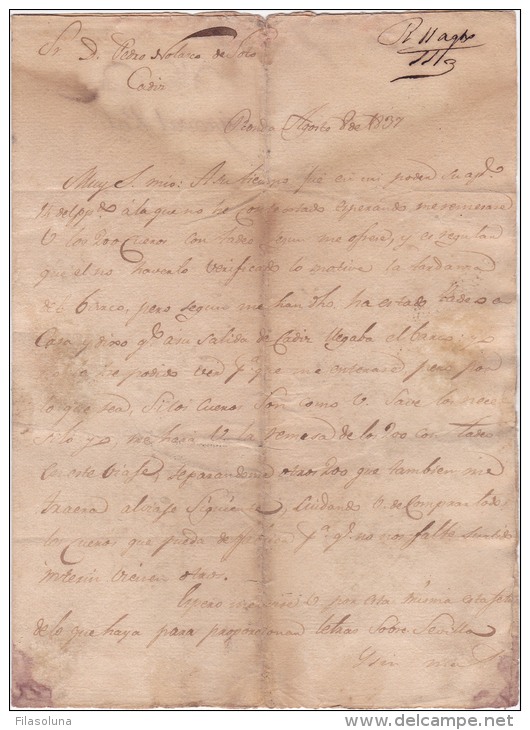 Sr. D. Pedro Nolasco de Soto
R 11 agto
Cadiz
Ronda Agosto 8 de 1837
Muy S. mio: A su tiempo fué en mi poder su apda.
14 del pp.do á la que no he contestado esperando me remitiese
V los 200 Cueros con tadeo segun me ofrecia, y es regular
que el no haverlo verificado lo motive la tardanza
del Barco, pero segun me han dho, ha estado tadeo en
Casa y dixo qe. a su salida de Cadiz llegaba el barco; yo
no he podido ver pa. que me enterase pero por
lo que sea, si los Cueros son como V. save los nece
sito yo, me hara V la remesa de los 200 con tadeo
en este viaje, separandome otros 200 que tambien me
traera al viaje siguiente, cuidando V. de comprar los
los cueros que pueda pa. qe. no nos falte surtido
interin vienen otros.
Espero V por esta misma estafeta
de lo que haya para proporcionar letras sobre Sevilla
y sin mas
Filasoluna
www.delcampe.net